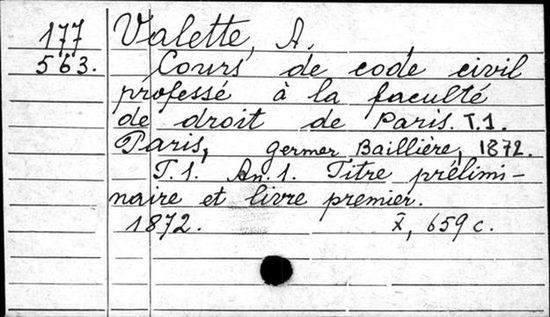 177 Valette, A.
563. Cours de code civil
professé à la faculté
de droit de Paris. T.1.
Paris, Germer Baillière, 1872.
T.1. An.1. Titre prélimi-
naire et livre premier.
1872. X, 659 c.